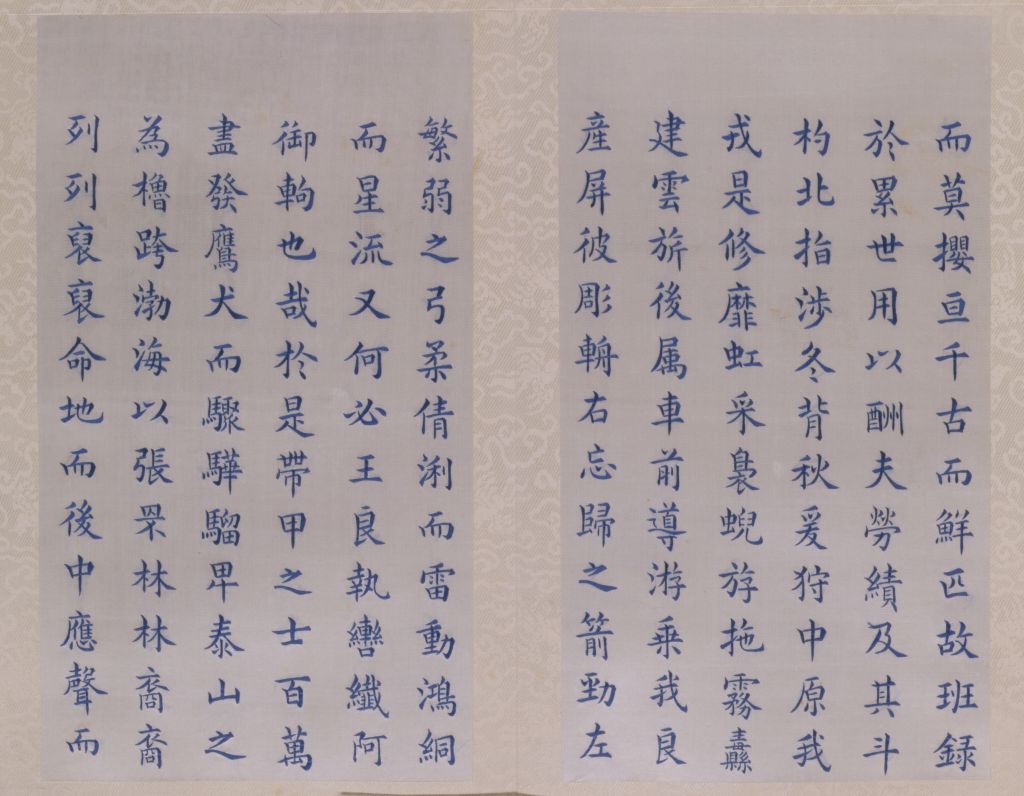 而莫攖亘千古而鮮匹故班録
於累世用以酬夫勞績及其斗
杓北指涉冬背秋爰狩中原我
戎是修靡虹采裊蜺斿拖霧纛
建雲旂後属車前導游乗我良
産屏彼彫輈右忘歸之箭勁左
繁弱之弓柔倩浰而雷動鴻絧
而星流又何必王良執轡纖阿
御軥也哉於是帶甲之士百萬
盡發鷹犬而驟驊騮卑泰山之
為櫓跨渤海以張罘林林裔裔
列列裒裒命地而後中應聲而